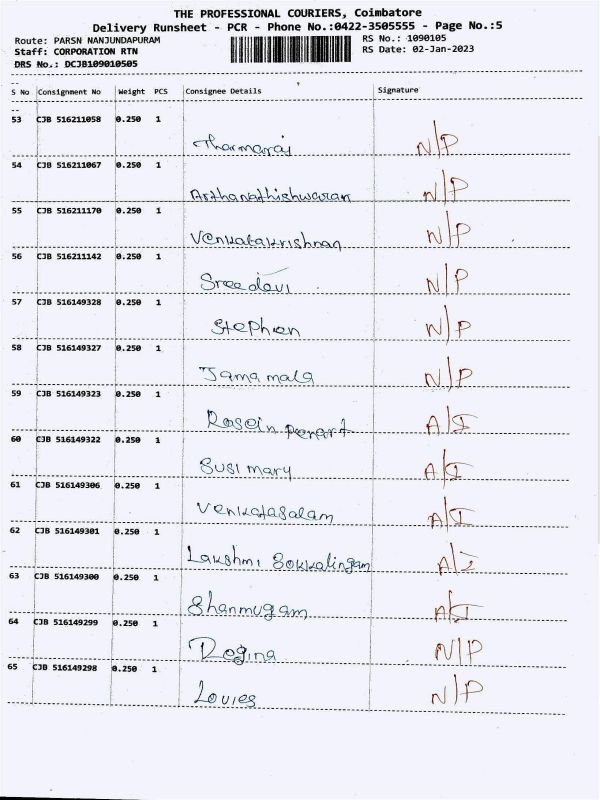 THE PROFESSIONAL COURIERS, Coimbatore
Delivery Runsheet - PCR - Phone No.:0422-3505555 - Page No.:5
Route: PARSN NANJUNDAPURAM RS No.: 1090105
Staff: CORPORATION RTN RS Date: 02-Jan-2023
DRS No.: DCJB109010505
S No Consignment No Weight PCS Consignee Details Signature
53 CJB 516211058 0.250 1
Tharmaraj N/P
54 CJB 516211067 0.250 1
Arthanathishwaran N/P
55 CJB 516211170 0.250 1
Venkatakrishnan N/P
56 CJB 516211142 0.250 1
Sreedavi N/P
57 CJB 516149328 0.250 1
Stephen N/P
58 CJB 516149327 0.250 1
Jama mala N/P
59 CJB 516149323 0.250 1
A/I
60 CJB 516149322 0.250 1
Susi mary A/I
61 CJB 516149306 0.250 1
Venkatasalam A/I
62 CJB 516149301 0.250 1
Lakshmi Sokkalingam A/I
63 CJB 516149300 0.250 1
Shanmugam A/I
64 CJB 516149299 0.250 1
Regina N/P
65 CJB 516149298 0.250 1
Louies N/P